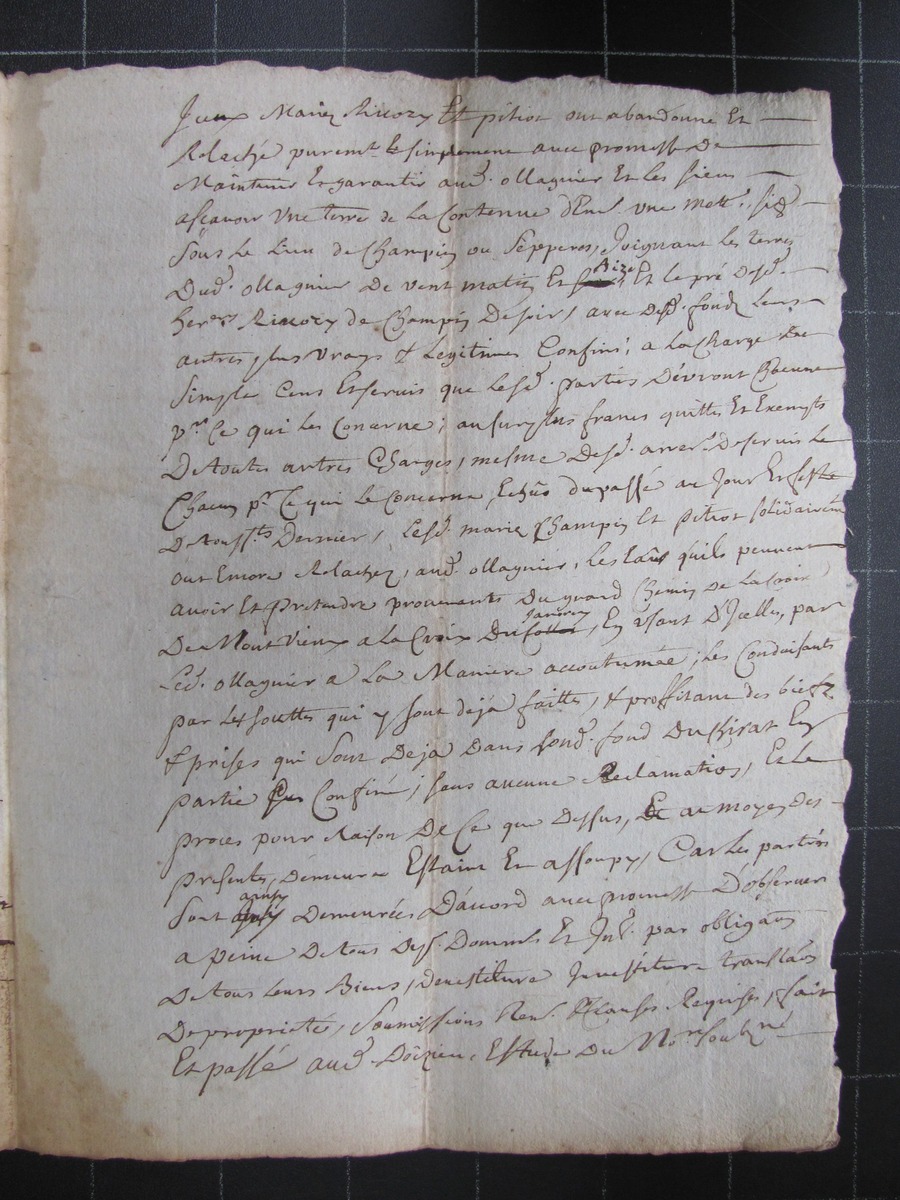 Iceux Mariez Rivory Et pitiot ont abandonné Et
Relaché purem.t & simplement avec promesse De
Maintenir Et garantir aud. ollagnier Et les siens
asçavoir Une terre de la Contenue d'Env. une mett.
Sous Le Lieu de Champin ou Sepperos, Joignant les terres
Dud. ollagnier De vent matin Et Bize Et le pré Desd.
her.rs Rivory de Champin De soir, avec Desd. fond Leurs
autres plus Vrays & Legitimes Confins, a La Charge De
Simple Cens Et servis que Lesd. parties Devront Chacune
p.r Ce qui Les Concerne, au surplus francs quittes Et Exempts
De toutes autres Charges, mesme Desd. arrer. De servis Le
Chacun p.r Ce qui Le Concerne Echûs du passé au Jour Et feste
De Touss.ts Dernier, Lesd. mariez Champin Et pitiot solidairem.t
ont Encore Relachez, aud. ollagnier, Les Eaus qu'ils peuvent
avoir Et pretendre provenants Du grand Chemin De La Croix
De Mont Vieux a La Croix Du janvrey, En Usant D'Icelles, par
Led. ollagnier a La Maniere accoutumée, Les Conduisants
par Les Souttes qui y sont déja faittes, & proffitant des biefz
& prises qui sont Deja Dans sond. fond Du Rivat En
partie Confiné, sans aucune Reclamation, Et Le
proces pour Raison De Ce que Dessus, Et au moyen Des
presentes, Demeure Estaint Et assoupy, Car Les parties
sont ainsy Demeurées D'accord avec promesse D'observer
a peine De tous Desp. Dommes Et Int. par obligaon
De tous Leurs Biens, Devestiture Investiture translaon
De proprieté, Soumissions Ren. & Clauses Requises, fait
Et passé aud. Doizieu Estude Du No.re soubz.né